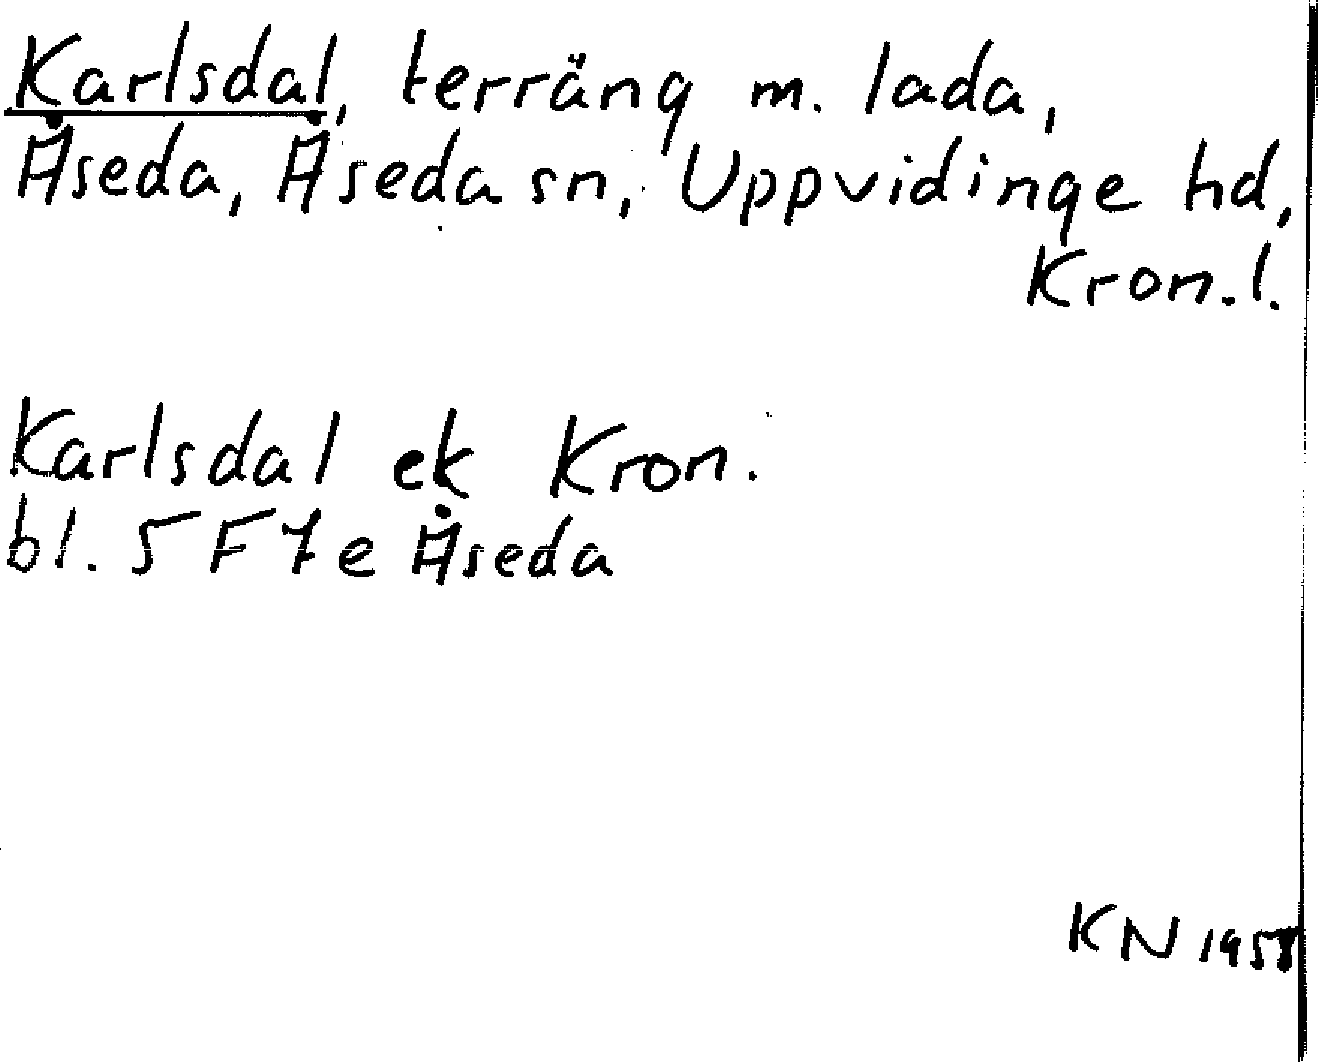 Karlsdal, terräng m. lada,
Åseda, Åseda sn, Uppvidinge hd,
Kron.l.
Karlsdal ek Kron.
bl. 5 F 7 e Åseda
KN